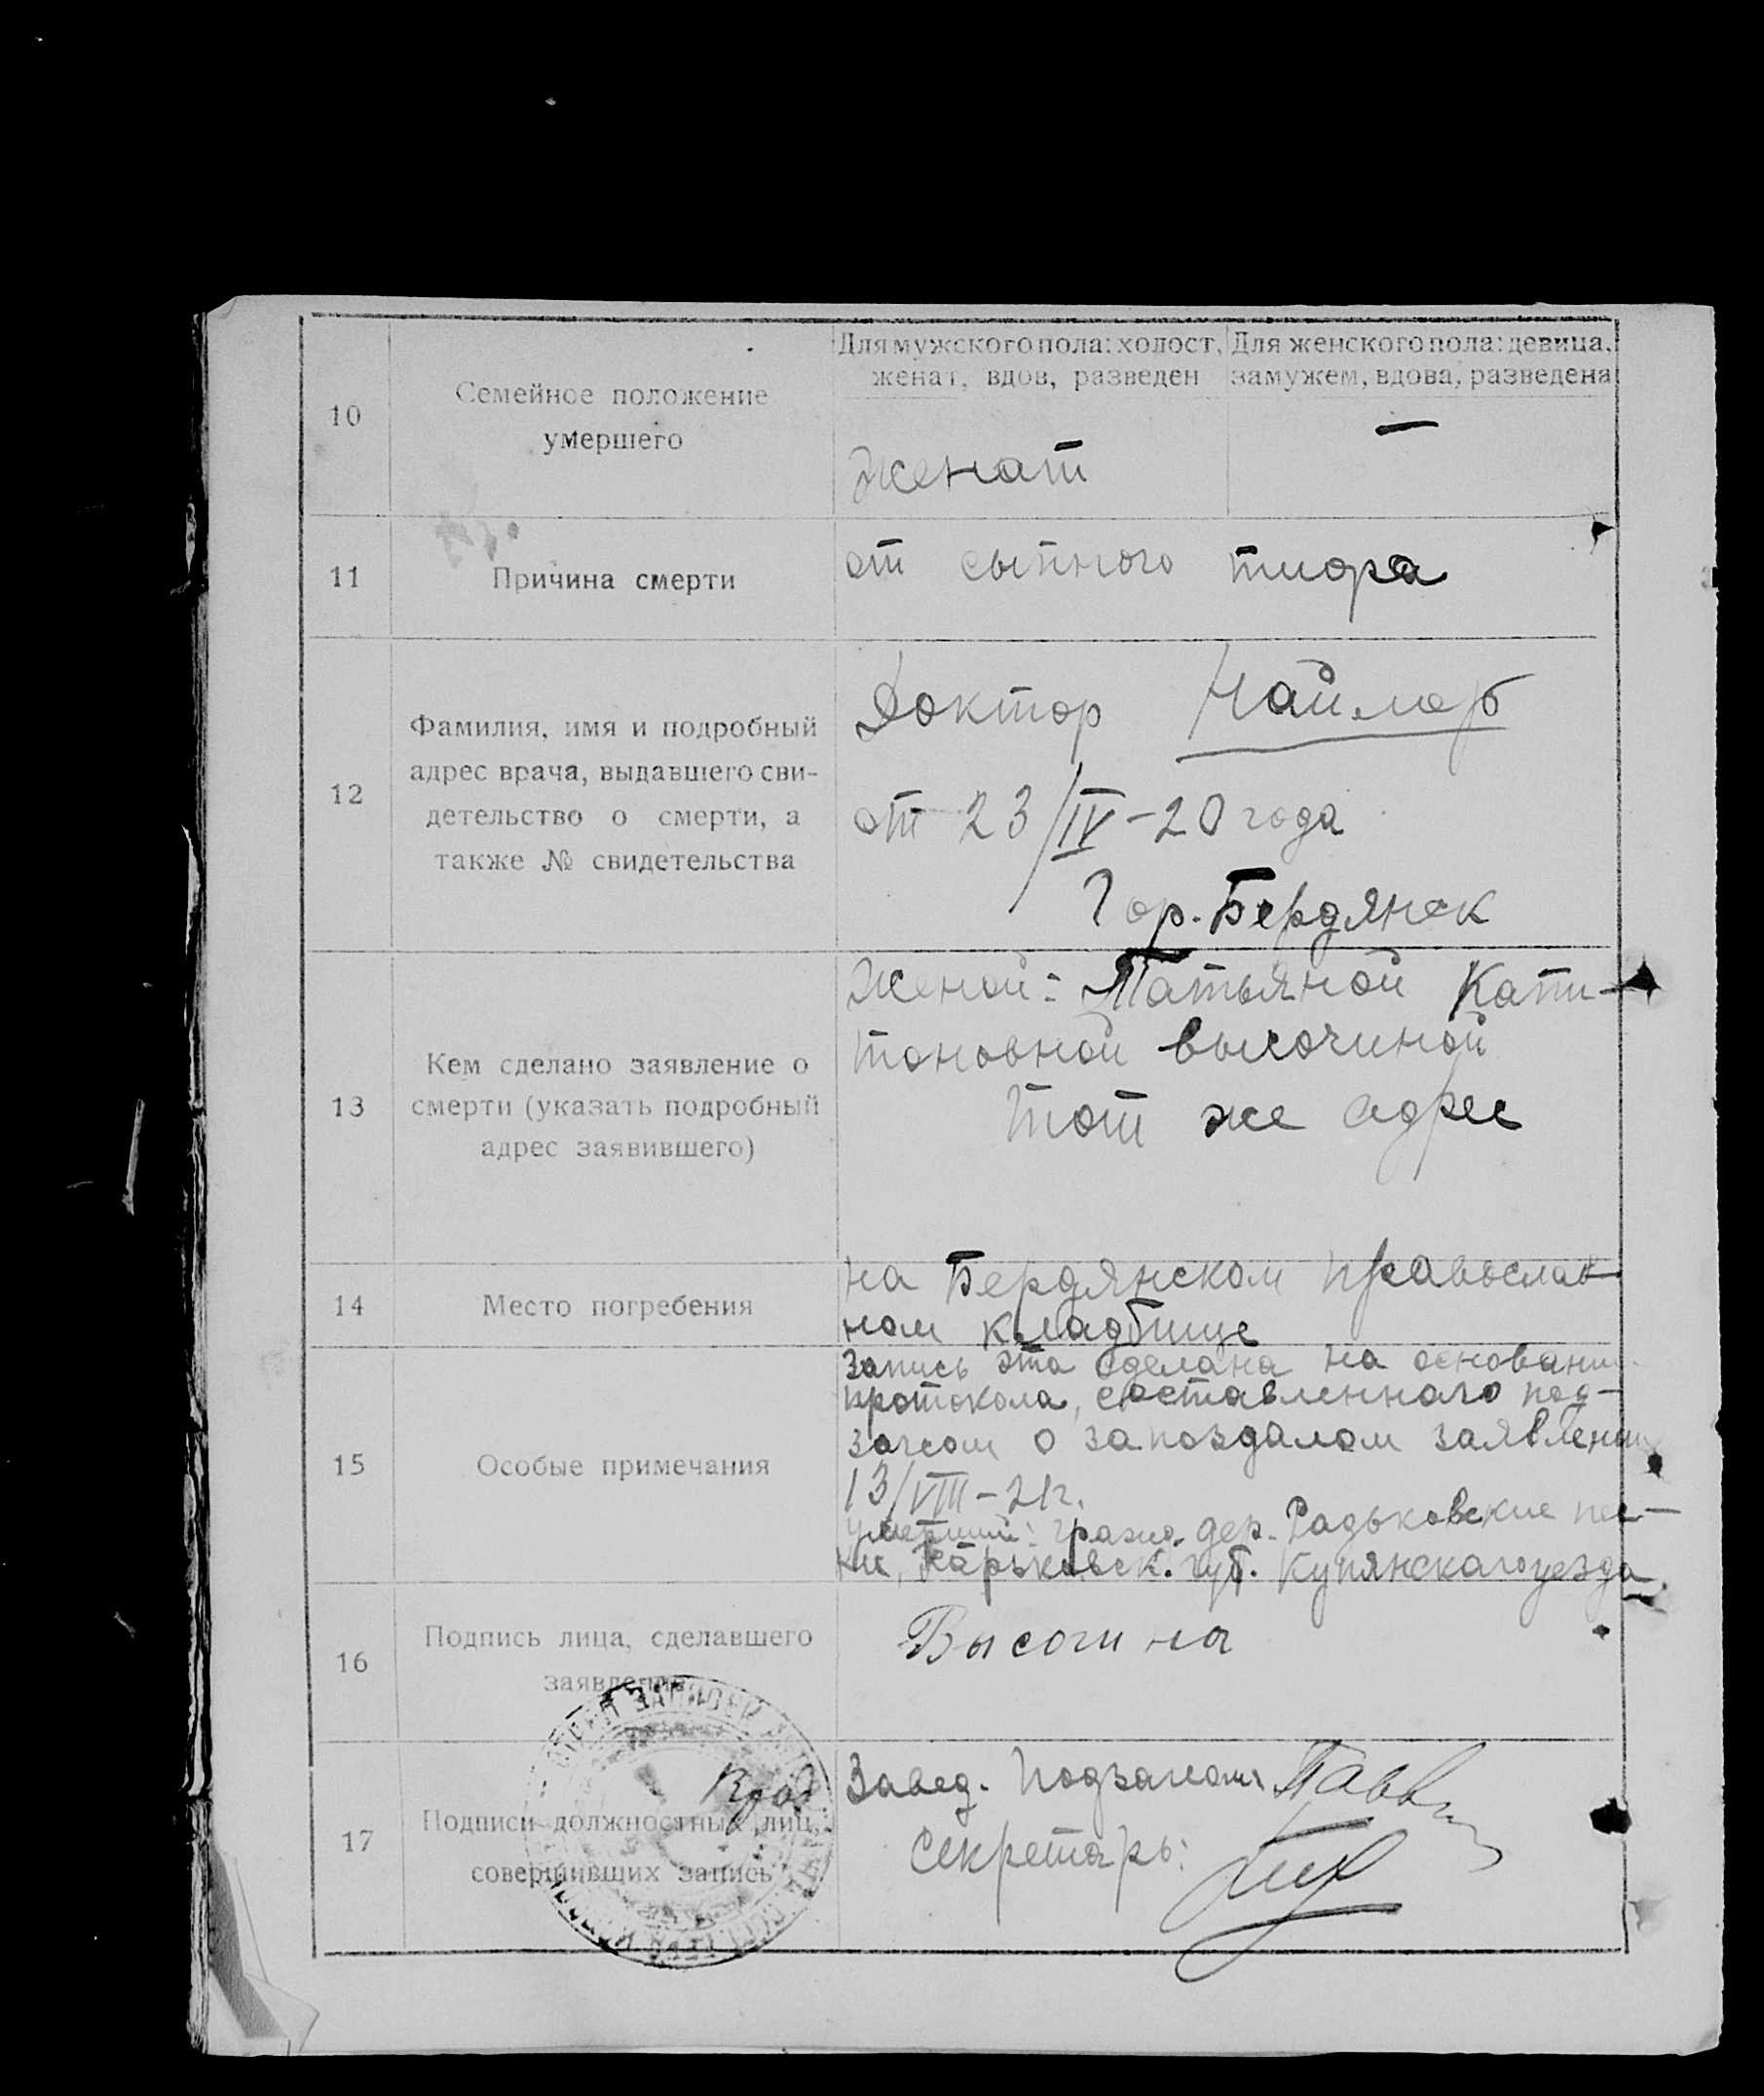 10
Семейное положение
умершего
Для мужского пола: холост,
женат, вдов, разведен
Для женского пола: девица,
замужем, вдова, разведена
Женат
—
11
Причина смерти
от сыпного тифа
12
Фамилия, имя и подробный
адрес врача, выдавшего сви-
детельство о смерти, а
также № свидетельства
Доктор
от 23/IV-20 года
Гор. Бердянск
13
Кем сделано заявление о
смерти (указать подробный
адрес заявившего)
Женой: Татьяной Капи-
тоновной Высочиной
тот же адрес
14
Место погребения
на Бердянском православ-
ном кладбище
15
Особые примечания
Запись эта сделана на основании
протокола, составленного под-
загсом о запоздалом заявлении
13/VIII-21г.
умерший: гражд. дер. Радьковские пес-
ки, Харьковск. губ. Купянского уезда
16
Подпись лица, сделавшего
заявление
Высочина
17
Подписи должностных лиц,
совершивших запись
Завед. Подзагсом
Секретарь: